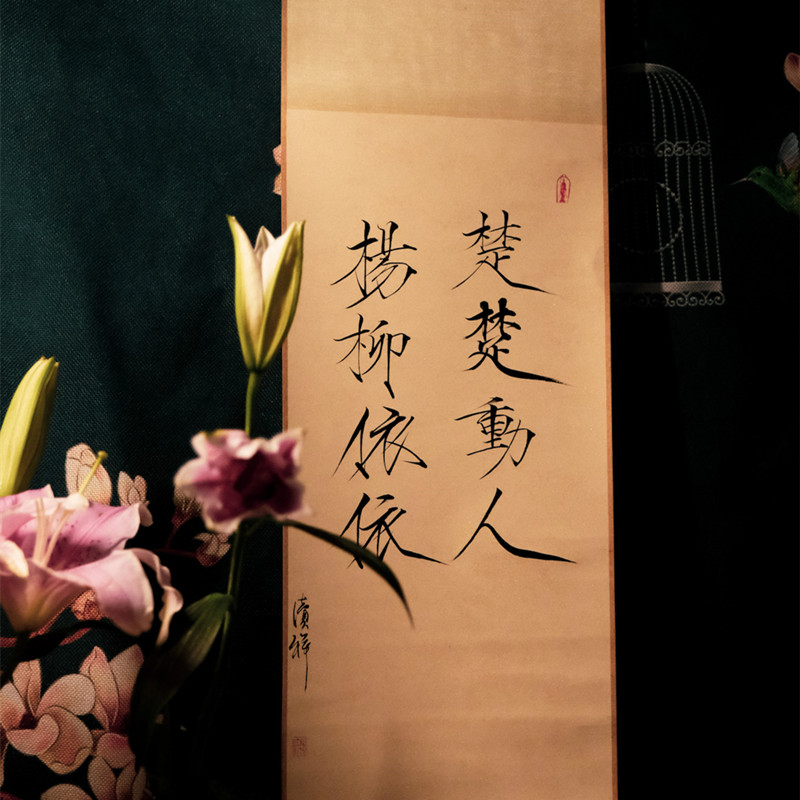 楚楚動人
楊柳依依